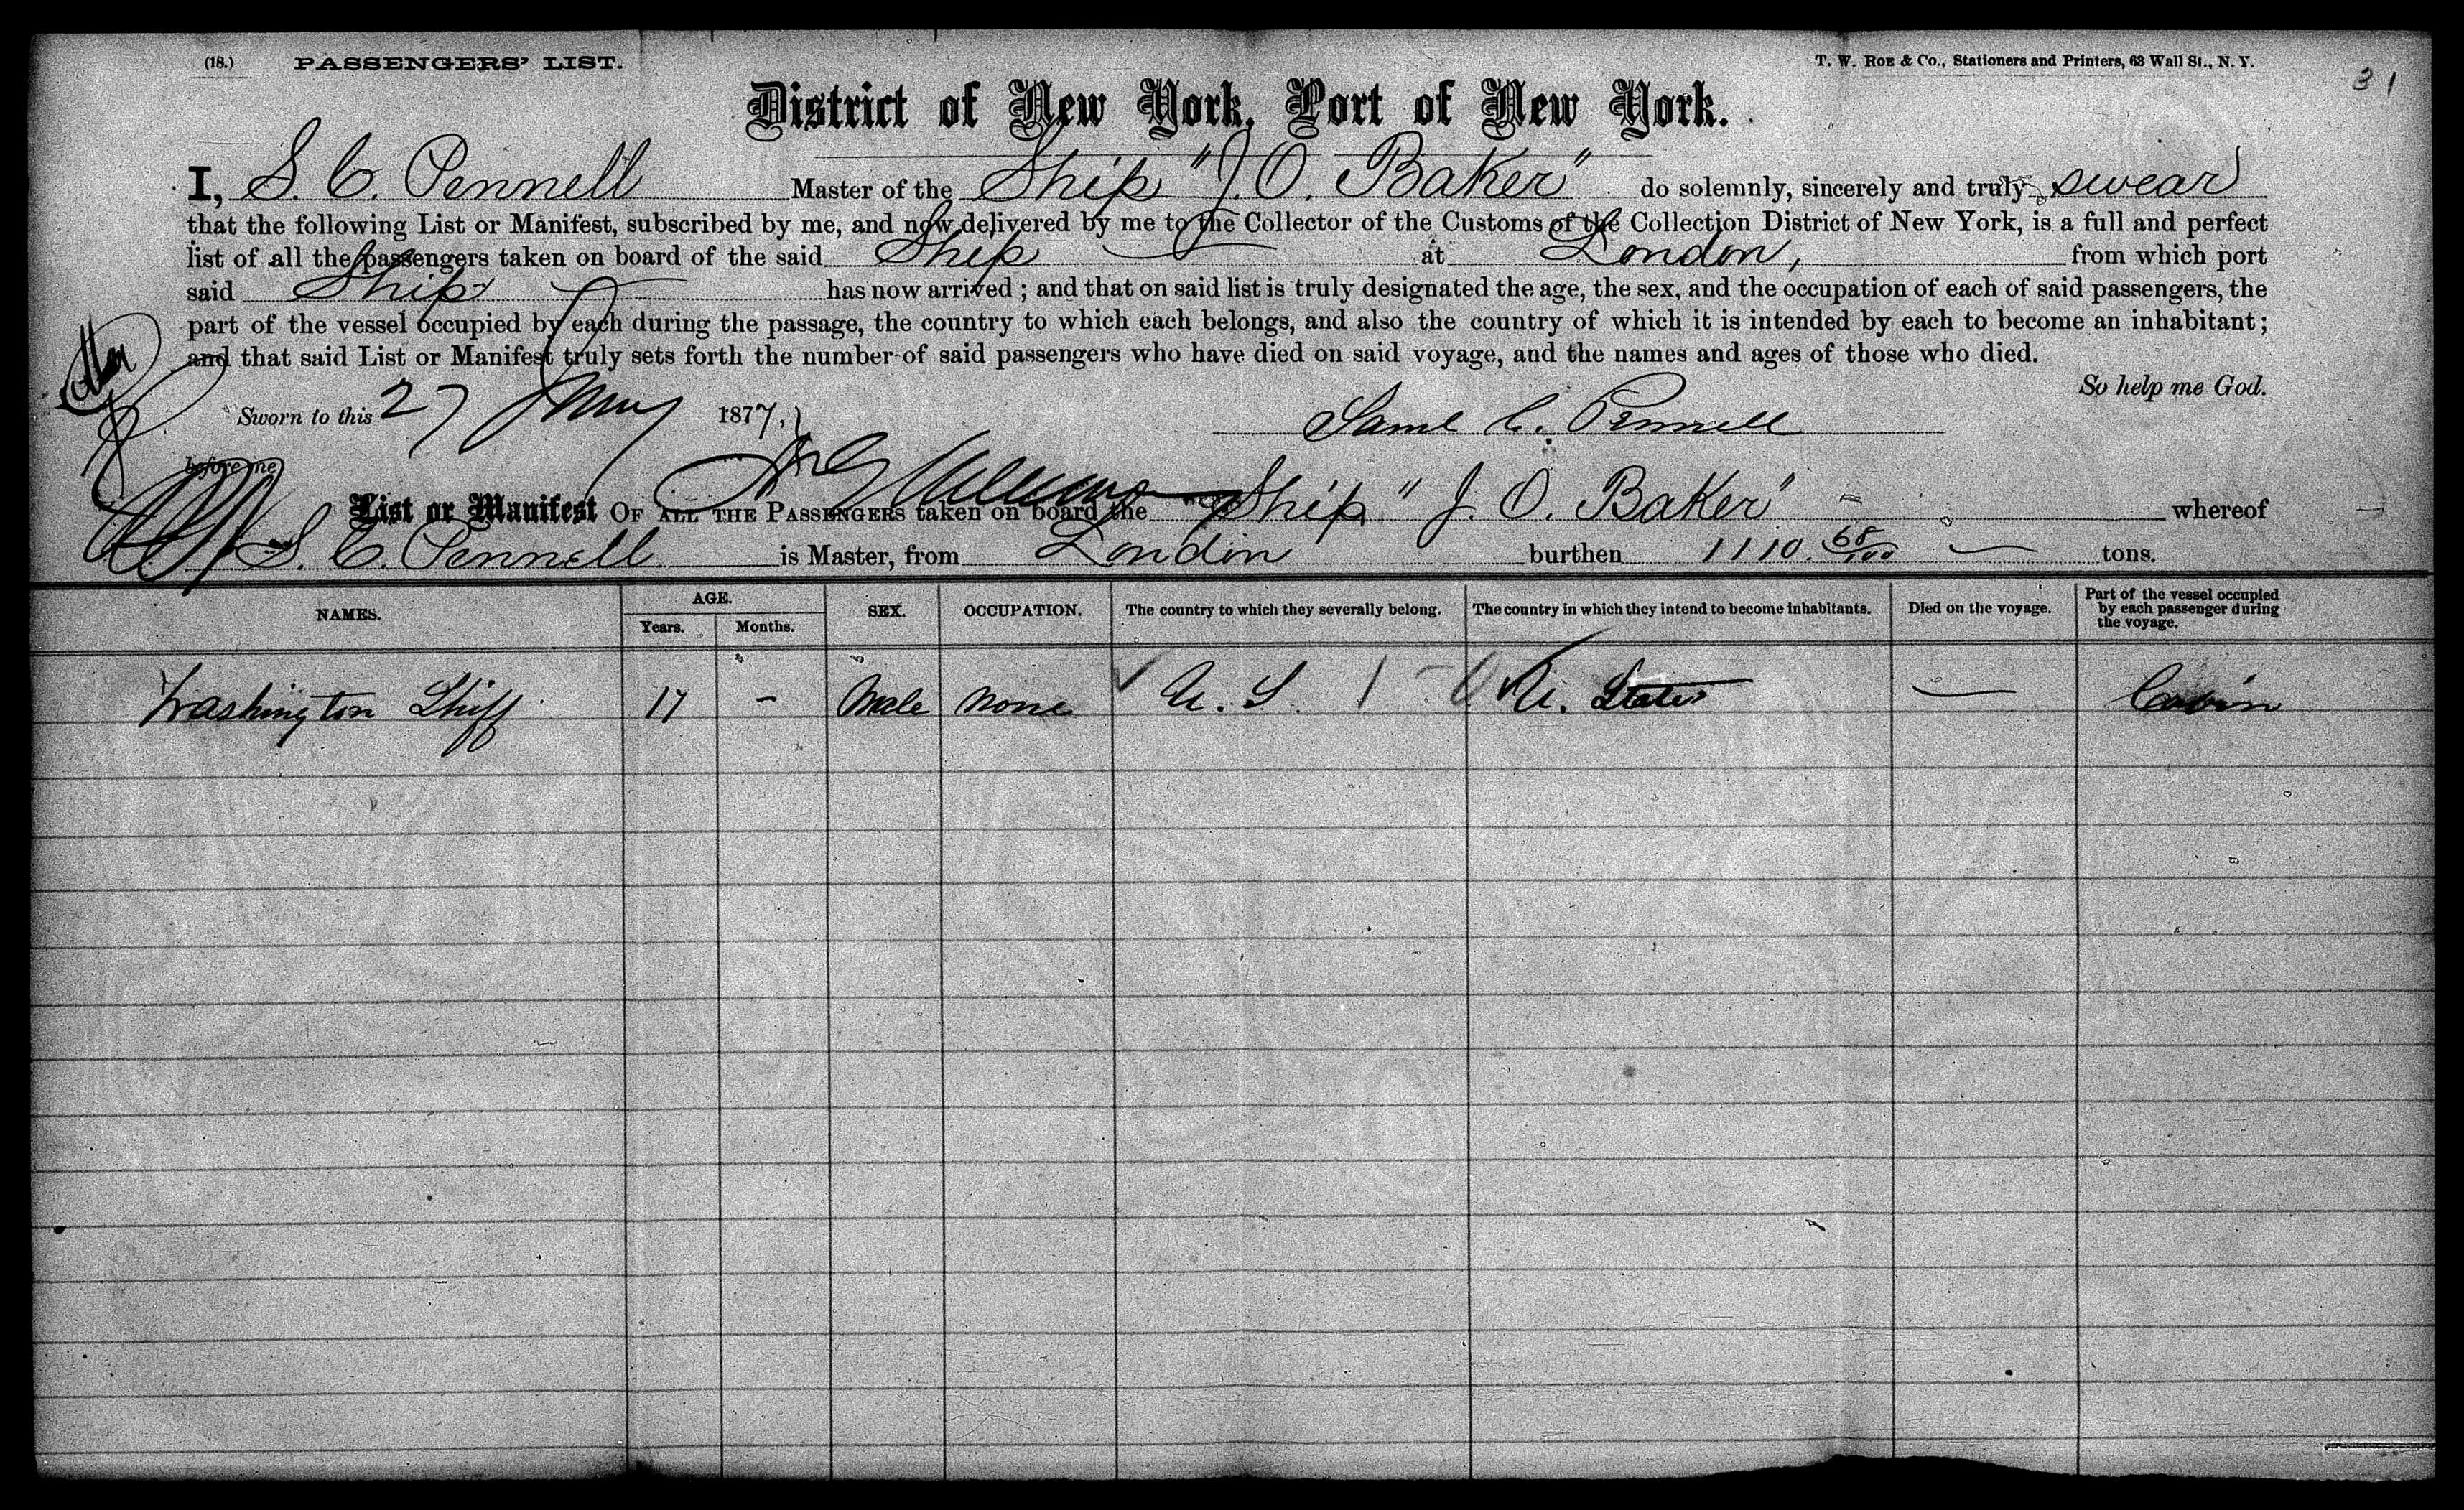 (18.) PASSENGERS' LIST. T. W. ROE & Co., Stationers and Printers, 63 Wall St., N. Y.
31
District of New York, Port of New York.
I, S. C. Pennell Master of the Ship "J. O. Baker" do solemnly, sincerely and truly swear
that the following List or Manifest, subscribed by me, and now delivered by me to the Collector of the Customs of the Collection District of New York, is a full and perfect
list of all the passengers taken on board of the said Ship at London, from which port
said Ship has now arrived; and that on said list is truly designated the age, the sex, and the occupation of each of said passengers, the
part of the vessel occupied by each during the passage, the country to which each belongs, and also the country of which it is intended by each to become an inhabitant;
and that said List or Manifest truly sets forth the number of said passengers who have died on said voyage, and the names and ages of those who died.
So help me God.
Sworn to this 27 May 1877, Saml C. Pennell
before me
List or Manifest OF ALL THE PASSENGERS taken on board the Ship "J. O. Baker" whereof
S. C. Pennell is Master, from London burthen 1110. 68/100 tons.
NAMES. AGE. Years. Months. SEX. OCCUPATION. The country to which they severally belong. The country in which they intend to become inhabitants. Died on the voyage. Part of the vessel occupied by each passenger during the voyage.
Washington Shiff 17 - Male None U. S. U. States — Cabin